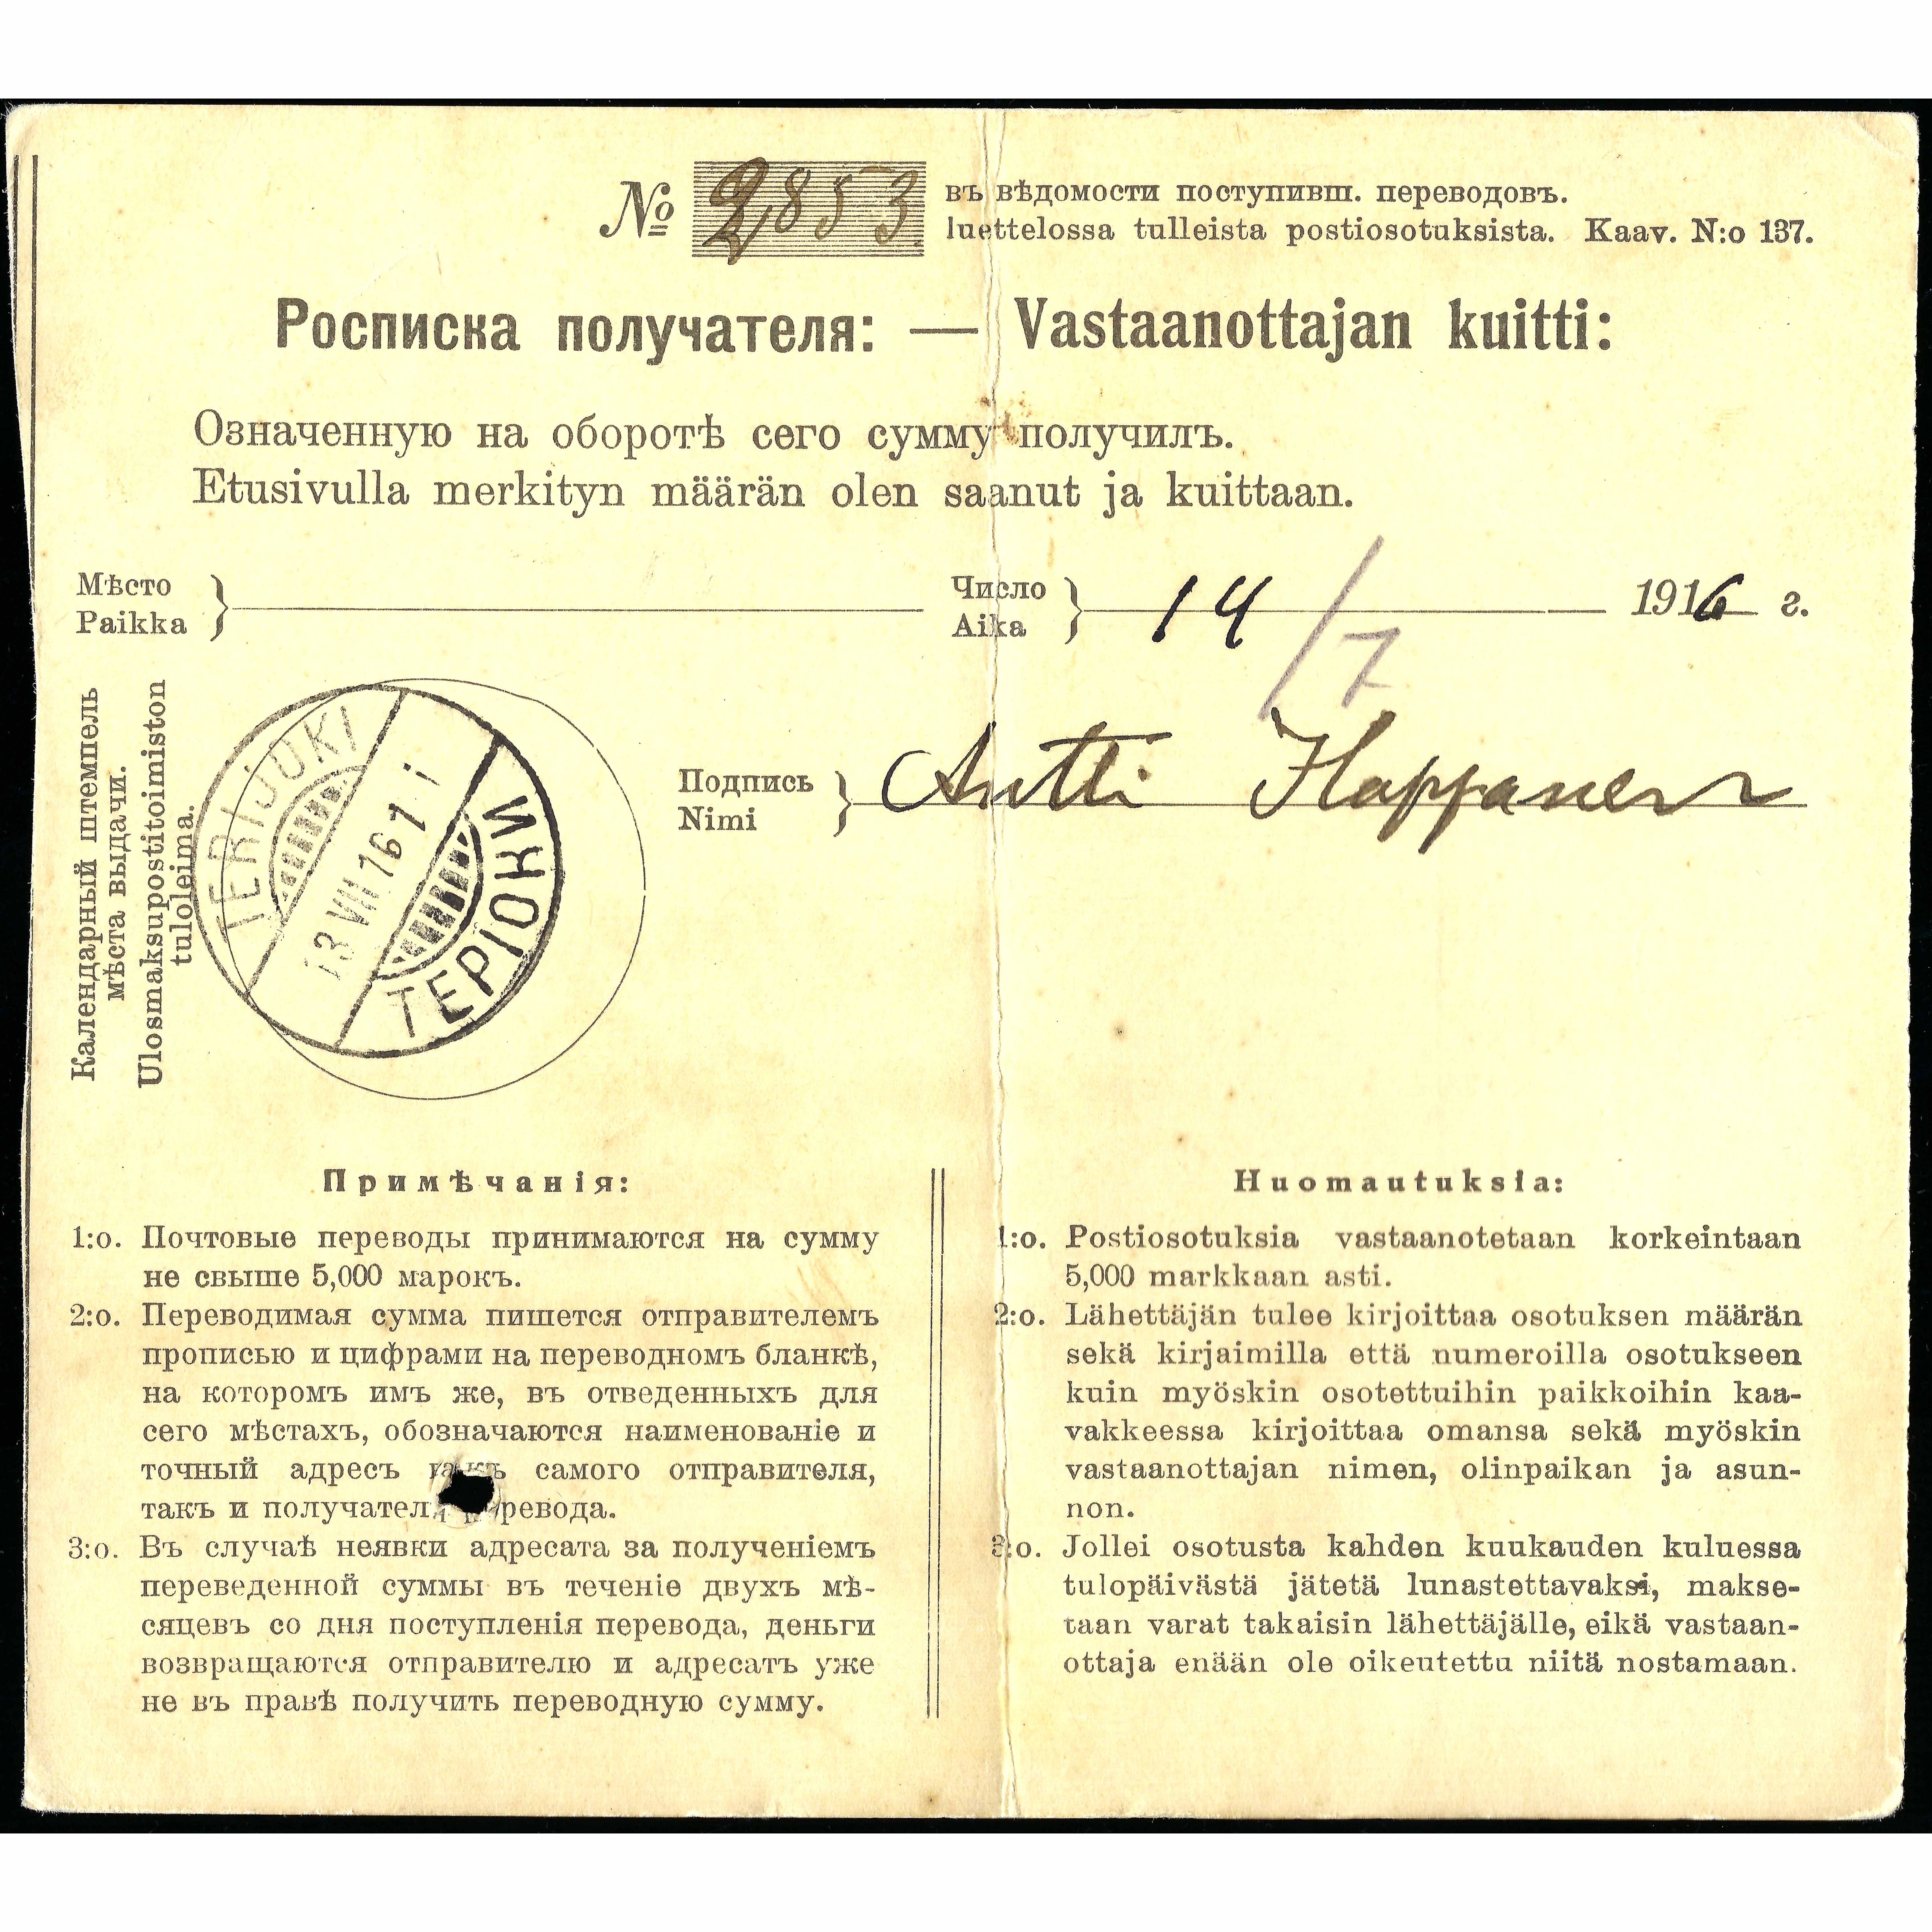 № 2853 въ вѣдомости поступивш. переводовъ.
luettelossa tulleista postiosotuksista. Kaav. N:o 137.
Росписка получателя: — Vastaanottajan kuitti:
Означенную на оборотѣ сего сумму получилъ.
Etusivulla merkityn määrän olen saanut ja kuittaan.
Мѣсто
Paikka
Число
Aika
14/7 1916 г.
Календарный штемпель
мѣста выдачи.
Ulosmaksupostitoimiston
tuloleima.
TERIJOKI
13 VII 16 7 i
ТЕРІОКИ
Подпись
Nimi
Antti Happanen
Примѣчанія:
1:о. Почтовые переводы принимаются на сумму
не свыше 5,000 марокъ.
2:о. Переводимая сумма пишется отправителемъ
прописью и цифрами на переводномъ бланкѣ,
на которомъ имъ же, въ отведенныхъ для
сего мѣстахъ, обозначаются наименованіе и
точный адресъ какъ самого отправителя,
такъ и получателя перевода.
3:о. Въ случаѣ неявки адресата за полученіемъ
переведенной суммы въ теченіе двухъ мѣ-
сяцевъ со дня поступленія перевода, деньги
возвращаются отправителю и адресатъ уже
не въ правѣ получить переводную сумму.
Huomautuksia:
1:o. Postiosotuksia vastaanotetaan korkeintaan
5,000 markkaan asti.
2:o. Lähettäjän tulee kirjoittaa osotuksen määrän
sekä kirjaimilla että numeroilla osotukseen
kuin myöskin osotettuihin paikkoihin kaa-
vakkeessa kirjoittaa omansa sekä myöskin
vastaanottajan nimen, olinpaikan ja asun-
non.
3:o. Jollei osotusta kahden kuukauden kuluessa
tulopäivästä jätetä lunastettavaksi, makse-
taan varat takaisin lähettäjälle, eikä vastaan-
ottaja enään ole oikeutettu niitä nostamaan.